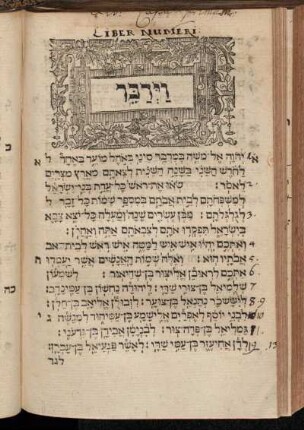 LIBER NUMERI.
וַיְדַבֵּר
א יהוה אל משה במדבר סיני באהל מועד באחד
לחדש השני בשנה השנית לצאתם מארץ מצרים
2 לאמר: שאו את ראש כל עדת בני ישראל
למשפחתם לבית אבתם במספר שמות כל זכר
3 לגלגלתם: מבן עשרים שנה ומעלה כל יצא צבא
בישראל תפקדו אתם לצבאתם אתה ואהרן:
4 ואתכם יהיו איש איש למטה איש ראש לבית אב
5 אבתיו הוא: ואלה שמות האנשים אשר יעמדו ה
6 אתכם לראובן אליצור בן שדיאור: לשמעון
7 שלמיאל בן צורי שדי: ליהודה נחשון בן עמינדב:
8 9 ליששכר נתנאל בן צוער: לזבולן אליאב בן חלן:
10 לבני יוסף לאפרים אלישמע בן עמיהוד למנשה
11 גמליאל בן פדה צור: לבנימן אבידן בן גדעני:
12 13 לדן אחיעזר בן עמי שדי: לאשר פגעיאל בן עכרן:
לגד